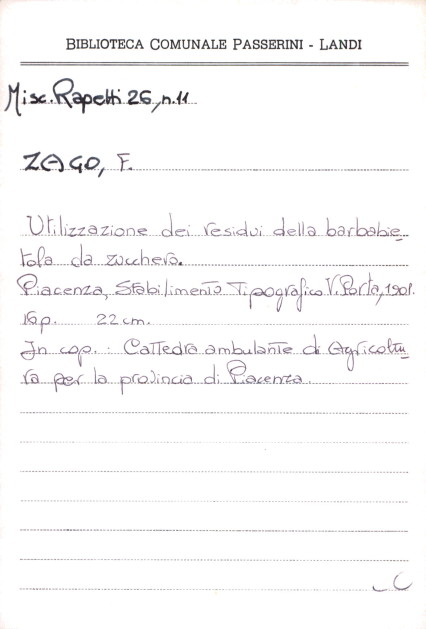 BIBLIOTECA COMUNALE PASSERINI - LANDI
Misc. Rapetti 26, n. 11
ZAGO, F.
Utilizzazione dei residui della barbabie-
tola da zucchero.
Piacenza, Stabilimento Tipografico V. Porta, 1901.
16 p. 22 cm.
In cop.: Cattedra ambulante di Agricoltu-
ra per la provincia di Piacenza.